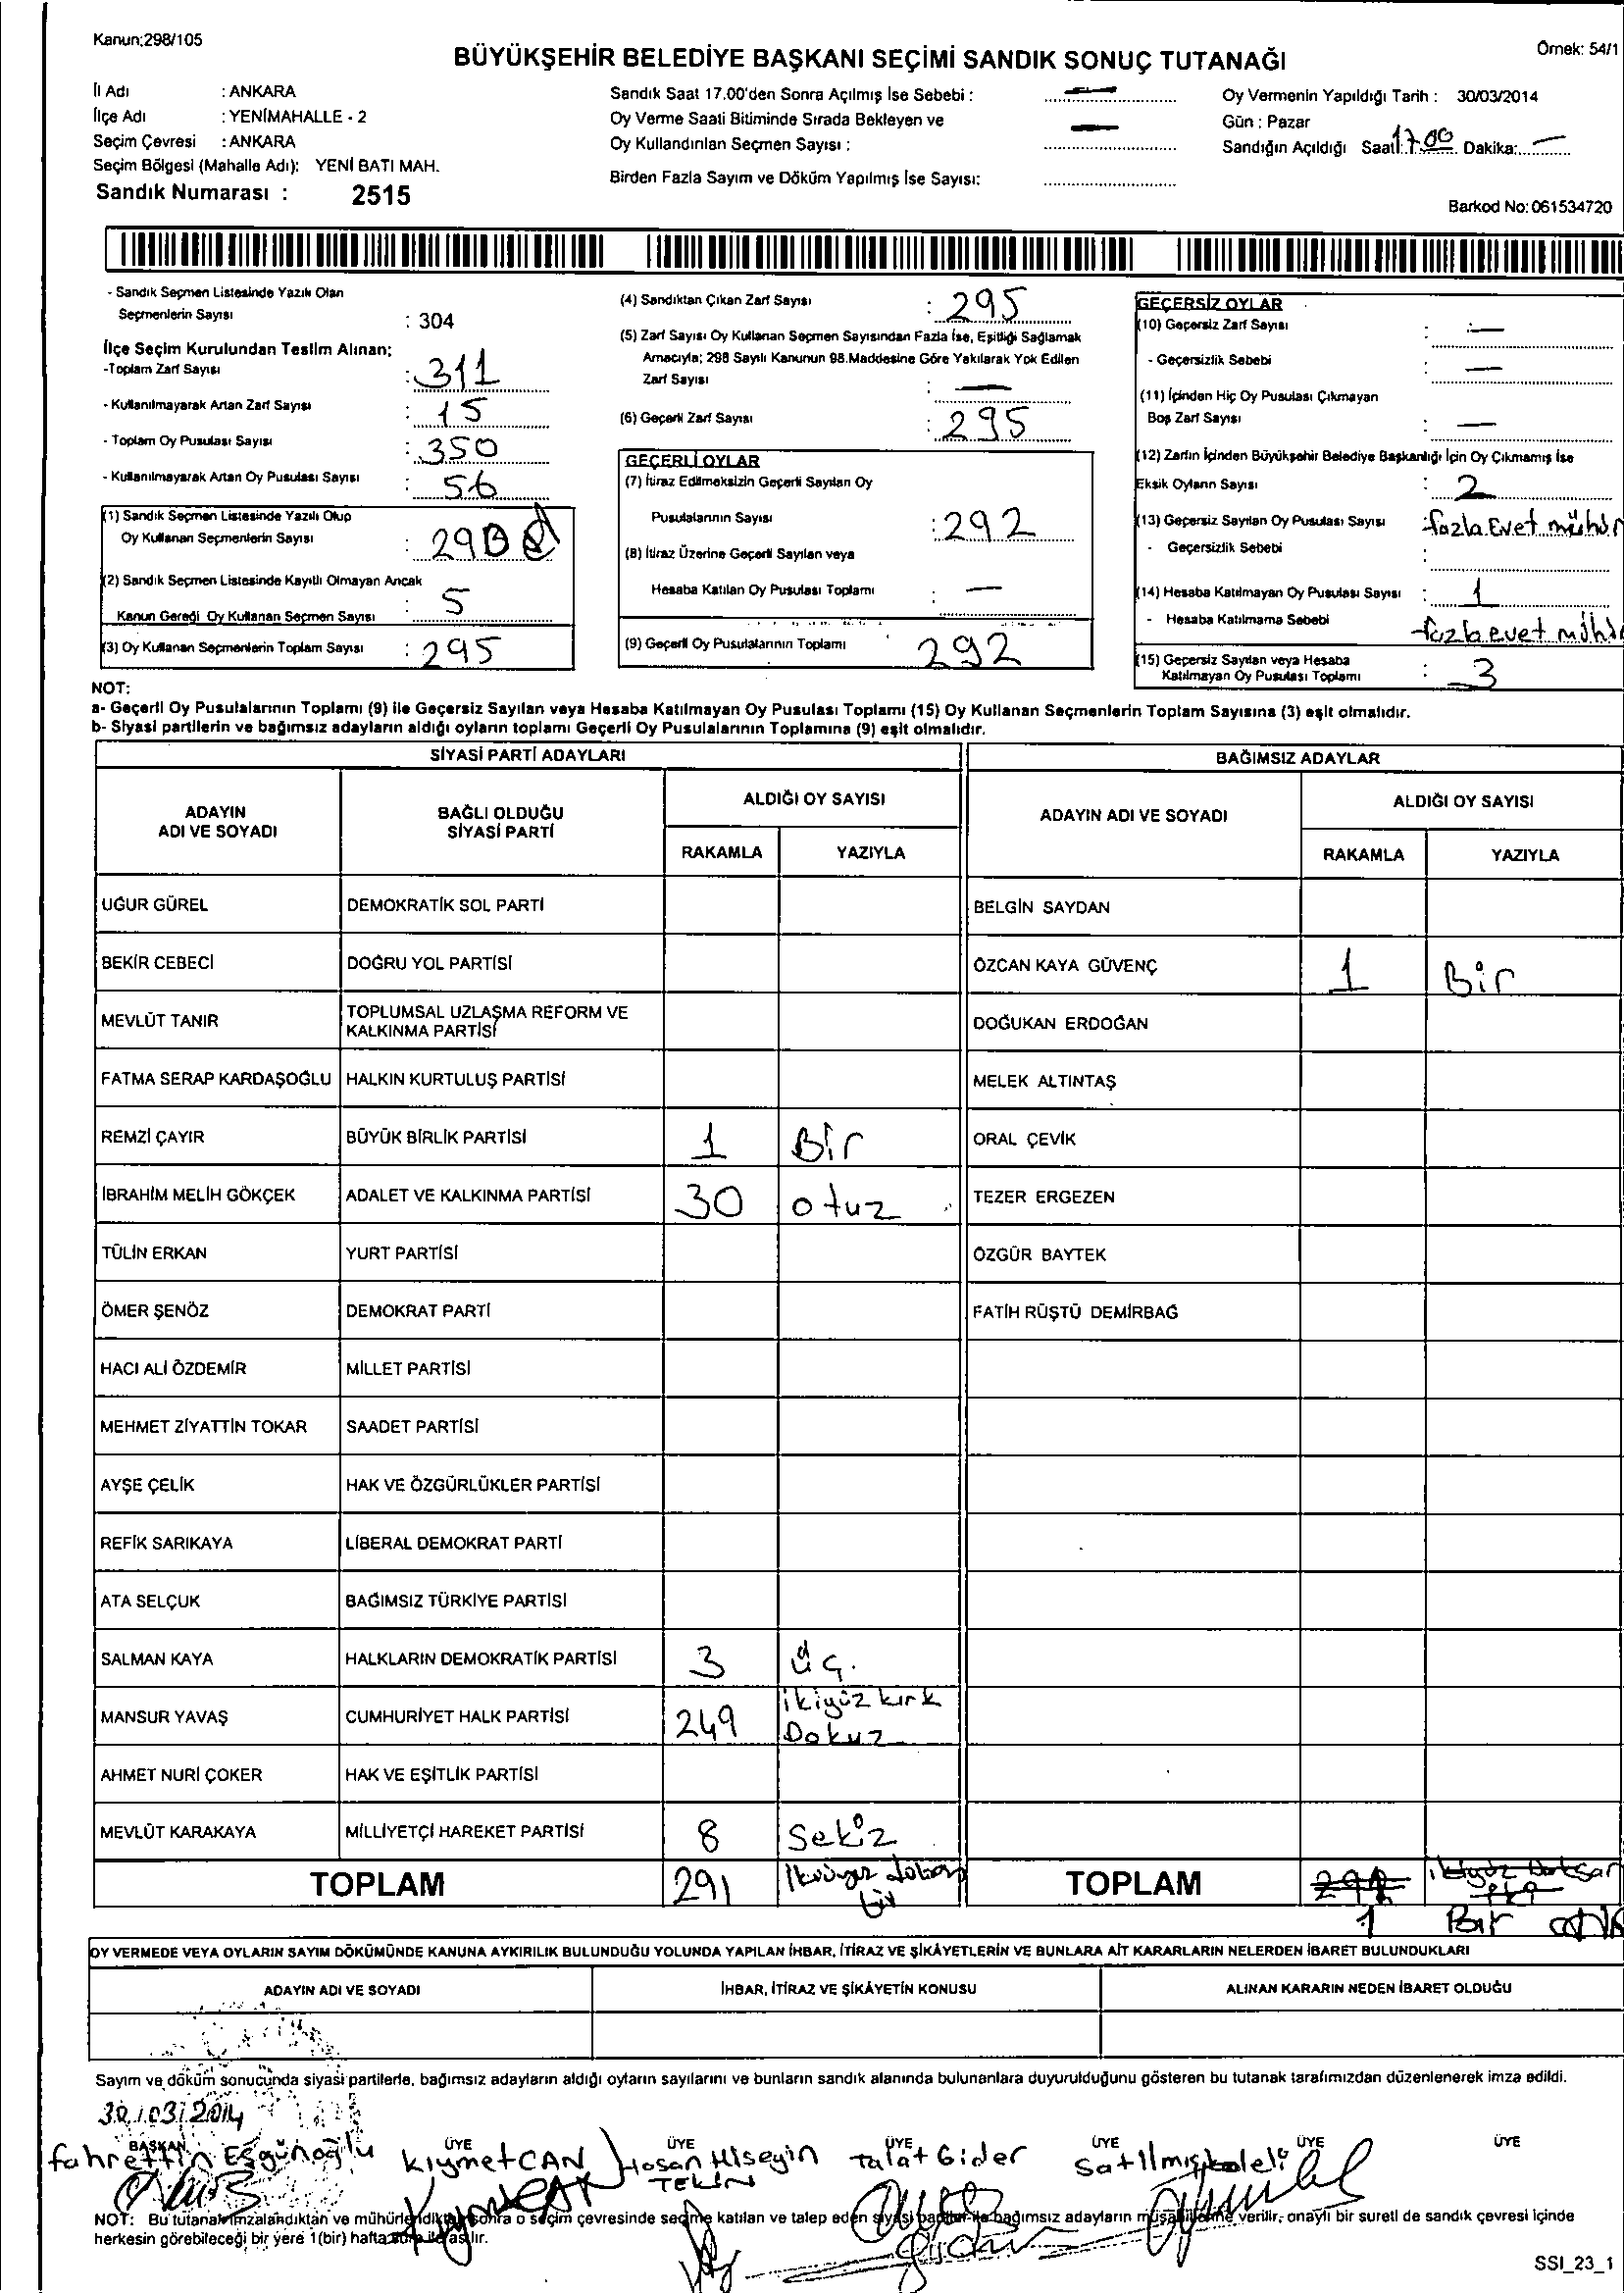 Kanun;298/105
Örnek: 54/1
BÜYÜKŞEHİR BELEDİYE BAŞKANI SEÇİMİ SANDIK SONUÇ TUTANAĞI
İl Adı : ANKARA
İlçe Adı : YENİMAHALLE - 2
Seçim Çevresi : ANKARA
Seçim Bölgesi (Mahalle Adı): YENİ BATI MAH.
Sandık Numarası : 2515
Sandık Saat 17.00'den Sonra Açılmış İse Sebebi : —
Oy Verme Saati Bitiminde Sırada Bekleyen ve
Oy Kullandırılan Seçmen Sayısı : —
Birden Fazla Sayım ve Döküm Yapılmış İse Sayısı:
Oy Vermenin Yapıldığı Tarih : 30/03/2014
Gün : Pazar
Sandığın Açıldığı Saat: 17.00 Dakika: —
Barkod No: 061534720
- Sandık Seçmen Listesinde Yazılı Olan
Seçmenlerin Sayısı : 304
İlçe Seçim Kurulundan Teslim Alınan;
-Toplam Zarf Sayısı : 311
- Kullanılmayarak Artan Zarf Sayısı : 15
- Toplam Oy Pusulası Sayısı : 350
- Kullanılmayarak Artan Oy Pusulası Sayısı : 56
(1) Sandık Seçmen Listesinde Yazılı Olup
Oy Kullanan Seçmenlerin Sayısı : 290
(2) Sandık Seçmen Listesinde Kayıtlı Olmayan Ancak
Kanun Gereği Oy Kullanan Seçmen Sayısı : 5
(3) Oy Kullanan Seçmenlerin Toplam Sayısı : 295
(4) Sandıktan Çıkan Zarf Sayısı : 295
(5) Zarf Sayısı Oy Kullanan Seçmen Sayısından Fazla İse, Eşitliği Sağlamak
Amacıyla; 298 Sayılı Kanunun 98.Maddesine Göre Yakılarak Yok Edilen
Zarf Sayısı : —
(6) Geçerli Zarf Sayısı : 295
GEÇERLİ OYLAR
(7) İtiraz Edilmeksizin Geçerli Sayılan Oy
Pusulalarının Sayısı : 292
(8) İtiraz Üzerine Geçerli Sayılan veya
Hesaba Katılan Oy Pusulası Toplamı : —
(9) Geçerli Oy Pusulalarının Toplamı 292
GEÇERSİZ OYLAR
(10) Geçersiz Zarf Sayısı : —
- Geçersizlik Sebebi —
(11) İçinden Hiç Oy Pusulası Çıkmayan
Boş Zarf Sayısı : —
(12) Zarfın İçinden Büyükşehir Belediye Başkanlığı İçin Oy Çıkmamış İse
Eksik Oyların Sayısı : 2
(13) Geçersiz Sayılan Oy Pusulası Sayısı : fazla Evet mühür
- Geçersizlik Sebebi :
(14) Hesaba Katılmayan Oy Pusulası Sayısı : 1
- Hesaba Katılmama Sebebi fazla evet mühü
(15) Geçersiz Sayılan veya Hesaba
Katılmayan Oy Pusulası Toplamı : 3
NOT:
a- Geçerli Oy Pusulalarının Toplamı (9) ile Geçersiz Sayılan veya Hesaba Katılmayan Oy Pusulası Toplamı (15) Oy Kullanan Seçmenlerin Toplam Sayısına (3) eşit olmalıdır.
b- Siyasi partilerin ve bağımsız adayların aldığı oyların toplamı Geçerli Oy Pusulalarının Toplamına (9) eşit olmalıdır.
SİYASİ PARTİ ADAYLARI
BAĞIMSIZ ADAYLAR
ADAYIN ADI VE SOYADI
BAĞLI OLDUĞU SİYASİ PARTİ
ALDIĞI OY SAYISI
RAKAMLA YAZIYLA
ADAYIN ADI VE SOYADI
ALDIĞI OY SAYISI
RAKAMLA YAZIYLA
UĞUR GÜREL DEMOKRATİK SOL PARTİ BELGİN SAYDAN
BEKİR CEBECİ DOĞRU YOL PARTİSİ ÖZCAN KAYA GÜVENÇ 1 Bir
MEVLÜT TANIR TOPLUMSAL UZLAŞMA REFORM VE KALKINMA PARTİSİ DOĞUKAN ERDOĞAN
FATMA SERAP KARDAŞOĞLU HALKIN KURTULUŞ PARTİSİ MELEK ALTINTAŞ
REMZİ ÇAYIR BÜYÜK BİRLİK PARTİSİ 1 Bir ORAL ÇEVİK
İBRAHİM MELİH GÖKÇEK ADALET VE KALKINMA PARTİSİ 30 otuz TEZER ERGEZEN
TÜLİN ERKAN YURT PARTİSİ ÖZGÜR BAYTEK
ÖMER ŞENÖZ DEMOKRAT PARTİ FATİH RÜŞTÜ DEMİRBAĞ
HACI ALİ ÖZDEMİR MİLLET PARTİSİ
MEHMET ZİYATTİN TOKAR SAADET PARTİSİ
AYŞE ÇELİK HAK VE ÖZGÜRLÜKLER PARTİSİ
REFİK SARIKAYA LİBERAL DEMOKRAT PARTİ
ATA SELÇUK BAĞIMSIZ TÜRKİYE PARTİSİ
SALMAN KAYA HALKLARIN DEMOKRATİK PARTİSİ 3 üç.
MANSUR YAVAŞ CUMHURİYET HALK PARTİSİ 249 ikiyüz kırk Dokuz
AHMET NURİ ÇOKER HAK VE EŞİTLİK PARTİSİ
MEVLÜT KARAKAYA MİLLİYETÇİ HAREKET PARTİSİ 8 Sekiz
TOPLAM 291 bir TOPLAM 292
1 Bir
OY VERMEDE VEYA OYLARIN SAYIM DÖKÜMÜNDE KANUNA AYKIRILIK BULUNDUĞU YOLUNDA YAPILAN İHBAR, İTİRAZ VE ŞİKÂYETLERİN VE BUNLARA AİT KARARLARIN NELERDEN İBARET BULUNDUKLARI
ADAYIN ADI VE SOYADI İHBAR, İTİRAZ VE ŞİKÂYETİN KONUSU ALINAN KARARIN NEDEN İBARET OLDUĞU
Sayım ve döküm sonucunda siyasi partilerle, bağımsız adayların aldığı oyların sayılarını ve bunların sandık alanında bulunanlara duyurulduğunu gösteren bu tutanak tarafımızdan düzenlenerek imza edildi.
30/03/2014
BAŞKAN ÜYE ÜYE ÜYE ÜYE ÜYE ÜYE
fahrettin Eşgünoğlu Kıymet CAN Hasan Hüseyin TEKİN Talat Gider Satılmış
NOT: Bu tutanak imzalandıktan ve mühürlendikten sonra o seçim çevresinde seçime katılan ve talep eden siyasi partiler ile bağımsız adayların müşahitlerine verilir, onaylı bir sureti de sandık çevresi içinde
herkesin görebileceği bir yere 1(bir) hafta süre ile asılır.
SSI_23_1